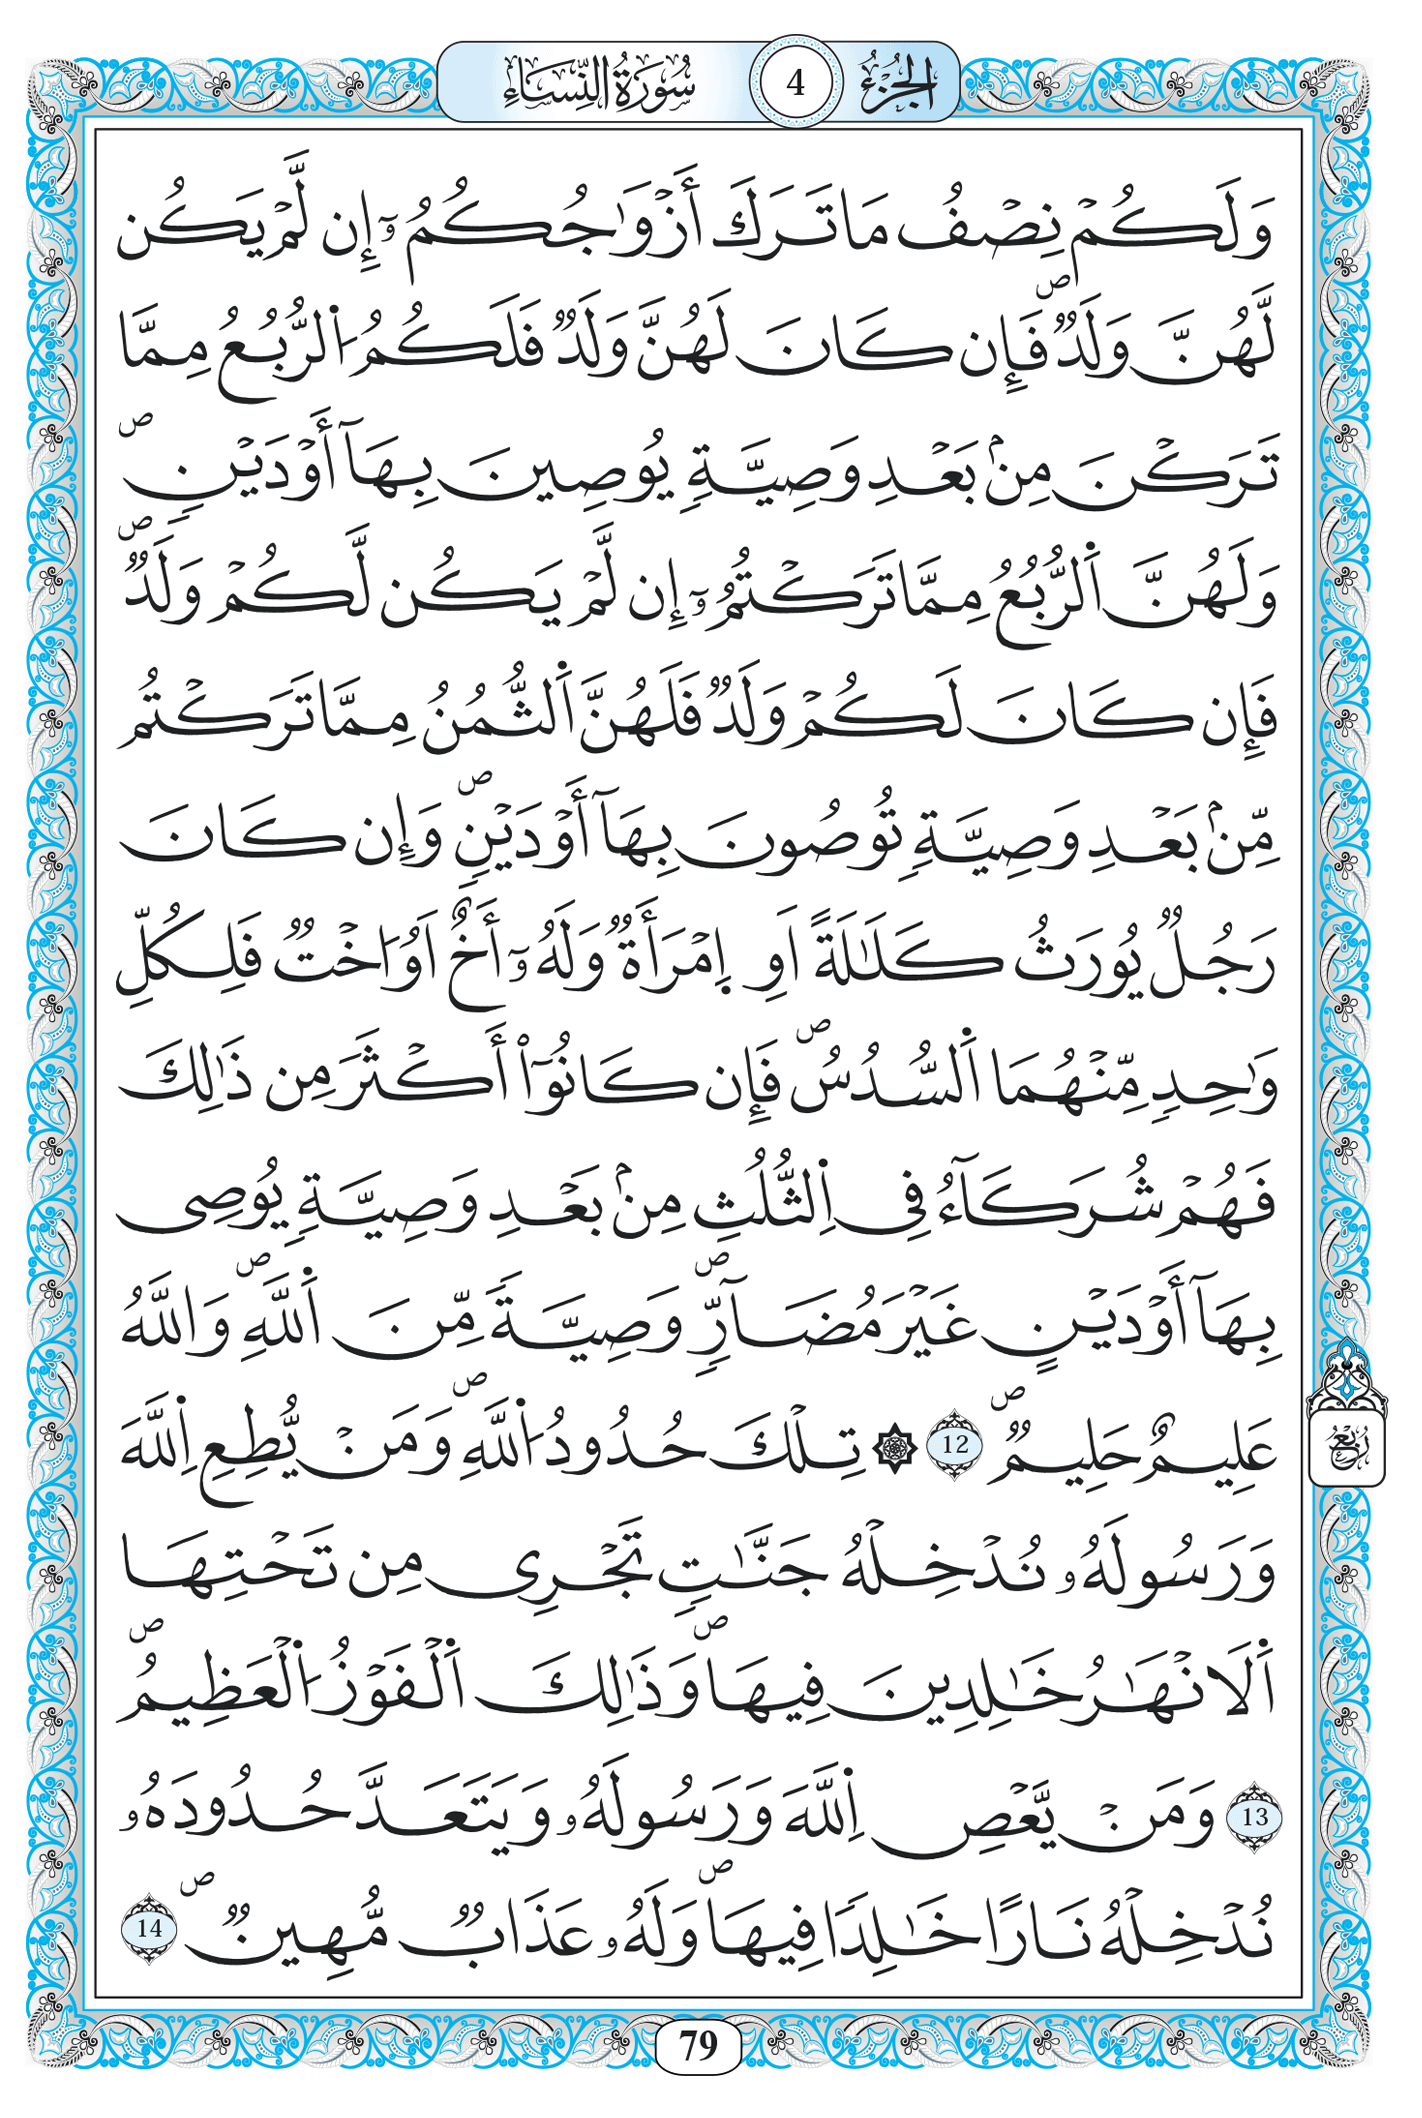 الجُزْءُ 4 سُورَةُ النِّسَاءِ
وَلَكُمْ نِصْفُ مَا تَرَكَ أَزْوَٰجُكُمُۥٓ إِن لَّمْ يَكُن
لَّهُنَّ وَلَدٌۖ فَإِن كَانَ لَهُنَّ وَلَدٌ فَلَكُمُ اُ۬لرُّبُعُ مِمَّا
تَرَكْنَ مِنۢ بَعْدِ وَصِيَّةٍ يُوصِينَ بِهَآ أَوْ دَيْنٍۖ
وَلَهُنَّ اَ۬لرُّبُعُ مِمَّا تَرَكْتُمُۥٓ إِن لَّمْ يَكُن لَّكُمْ وَلَدٌۖ
فَإِن كَانَ لَكُمْ وَلَدٌ فَلَهُنَّ اَ۬لثُّمُنُ مِمَّا تَرَكْتُم
مِّنۢ بَعْدِ وَصِيَّةٍ تُوصُونَ بِهَآ أَوْ دَيْنٍۖ وَإِن كَانَ
رَجُلٌ يُورَثُ كَلَٰلَةً اَوِ اِ۪مْرَأَةٌ وَلَهُۥٓ أَخٌ اَوُ اخْتٌ فَلِكُلِّ
وَٰحِدٍ مِّنْهُمَا اَ۬لسُّدُسُۖ فَإِن كَانُوٓاْ أَكْثَرَ مِن ذَٰلِكَ
فَهُمْ شُرَكَآءُ فِى اِ۬لثُّلُثِ مِنۢ بَعْدِ وَصِيَّةٍ يُوصِى
بِهَآ أَوْ دَيْنٍ غَيْرَ مُضَآرٍّۖ وَصِيَّةً مِّنَ اَ۬للَّهِۖ وَاللَّهُ
عَلِيمٌ حَلِيمٌۖ 12 ۞ تِلْكَ حُدُودُ اُ۬للَّهِۖ وَمَنْ يُّطِعِ اِ۬للَّهَ
وَرَسُولَهُۥ نُدْخِلْهُ جَنَّٰتٍ تَجْرِى مِن تَحْتِهَا
اَ۬لَانْهَٰرُ خَٰلِدِينَ فِيهَاۖ وَذَٰلِكَ اَ۬لْفَوْزُ اُ۬لْعَظِيمُۖ
13 وَمَنْ يَّعْصِ اِ۬للَّهَ وَرَسُولَهُۥ وَيَتَعَدَّ حُدُودَهُۥ
نُدْخِلْهُ نَارًا خَٰلِدًا فِيهَاۖ وَلَهُۥ عَذَابٌ مُّهِينٌۖ 14
رُبُعْ
79